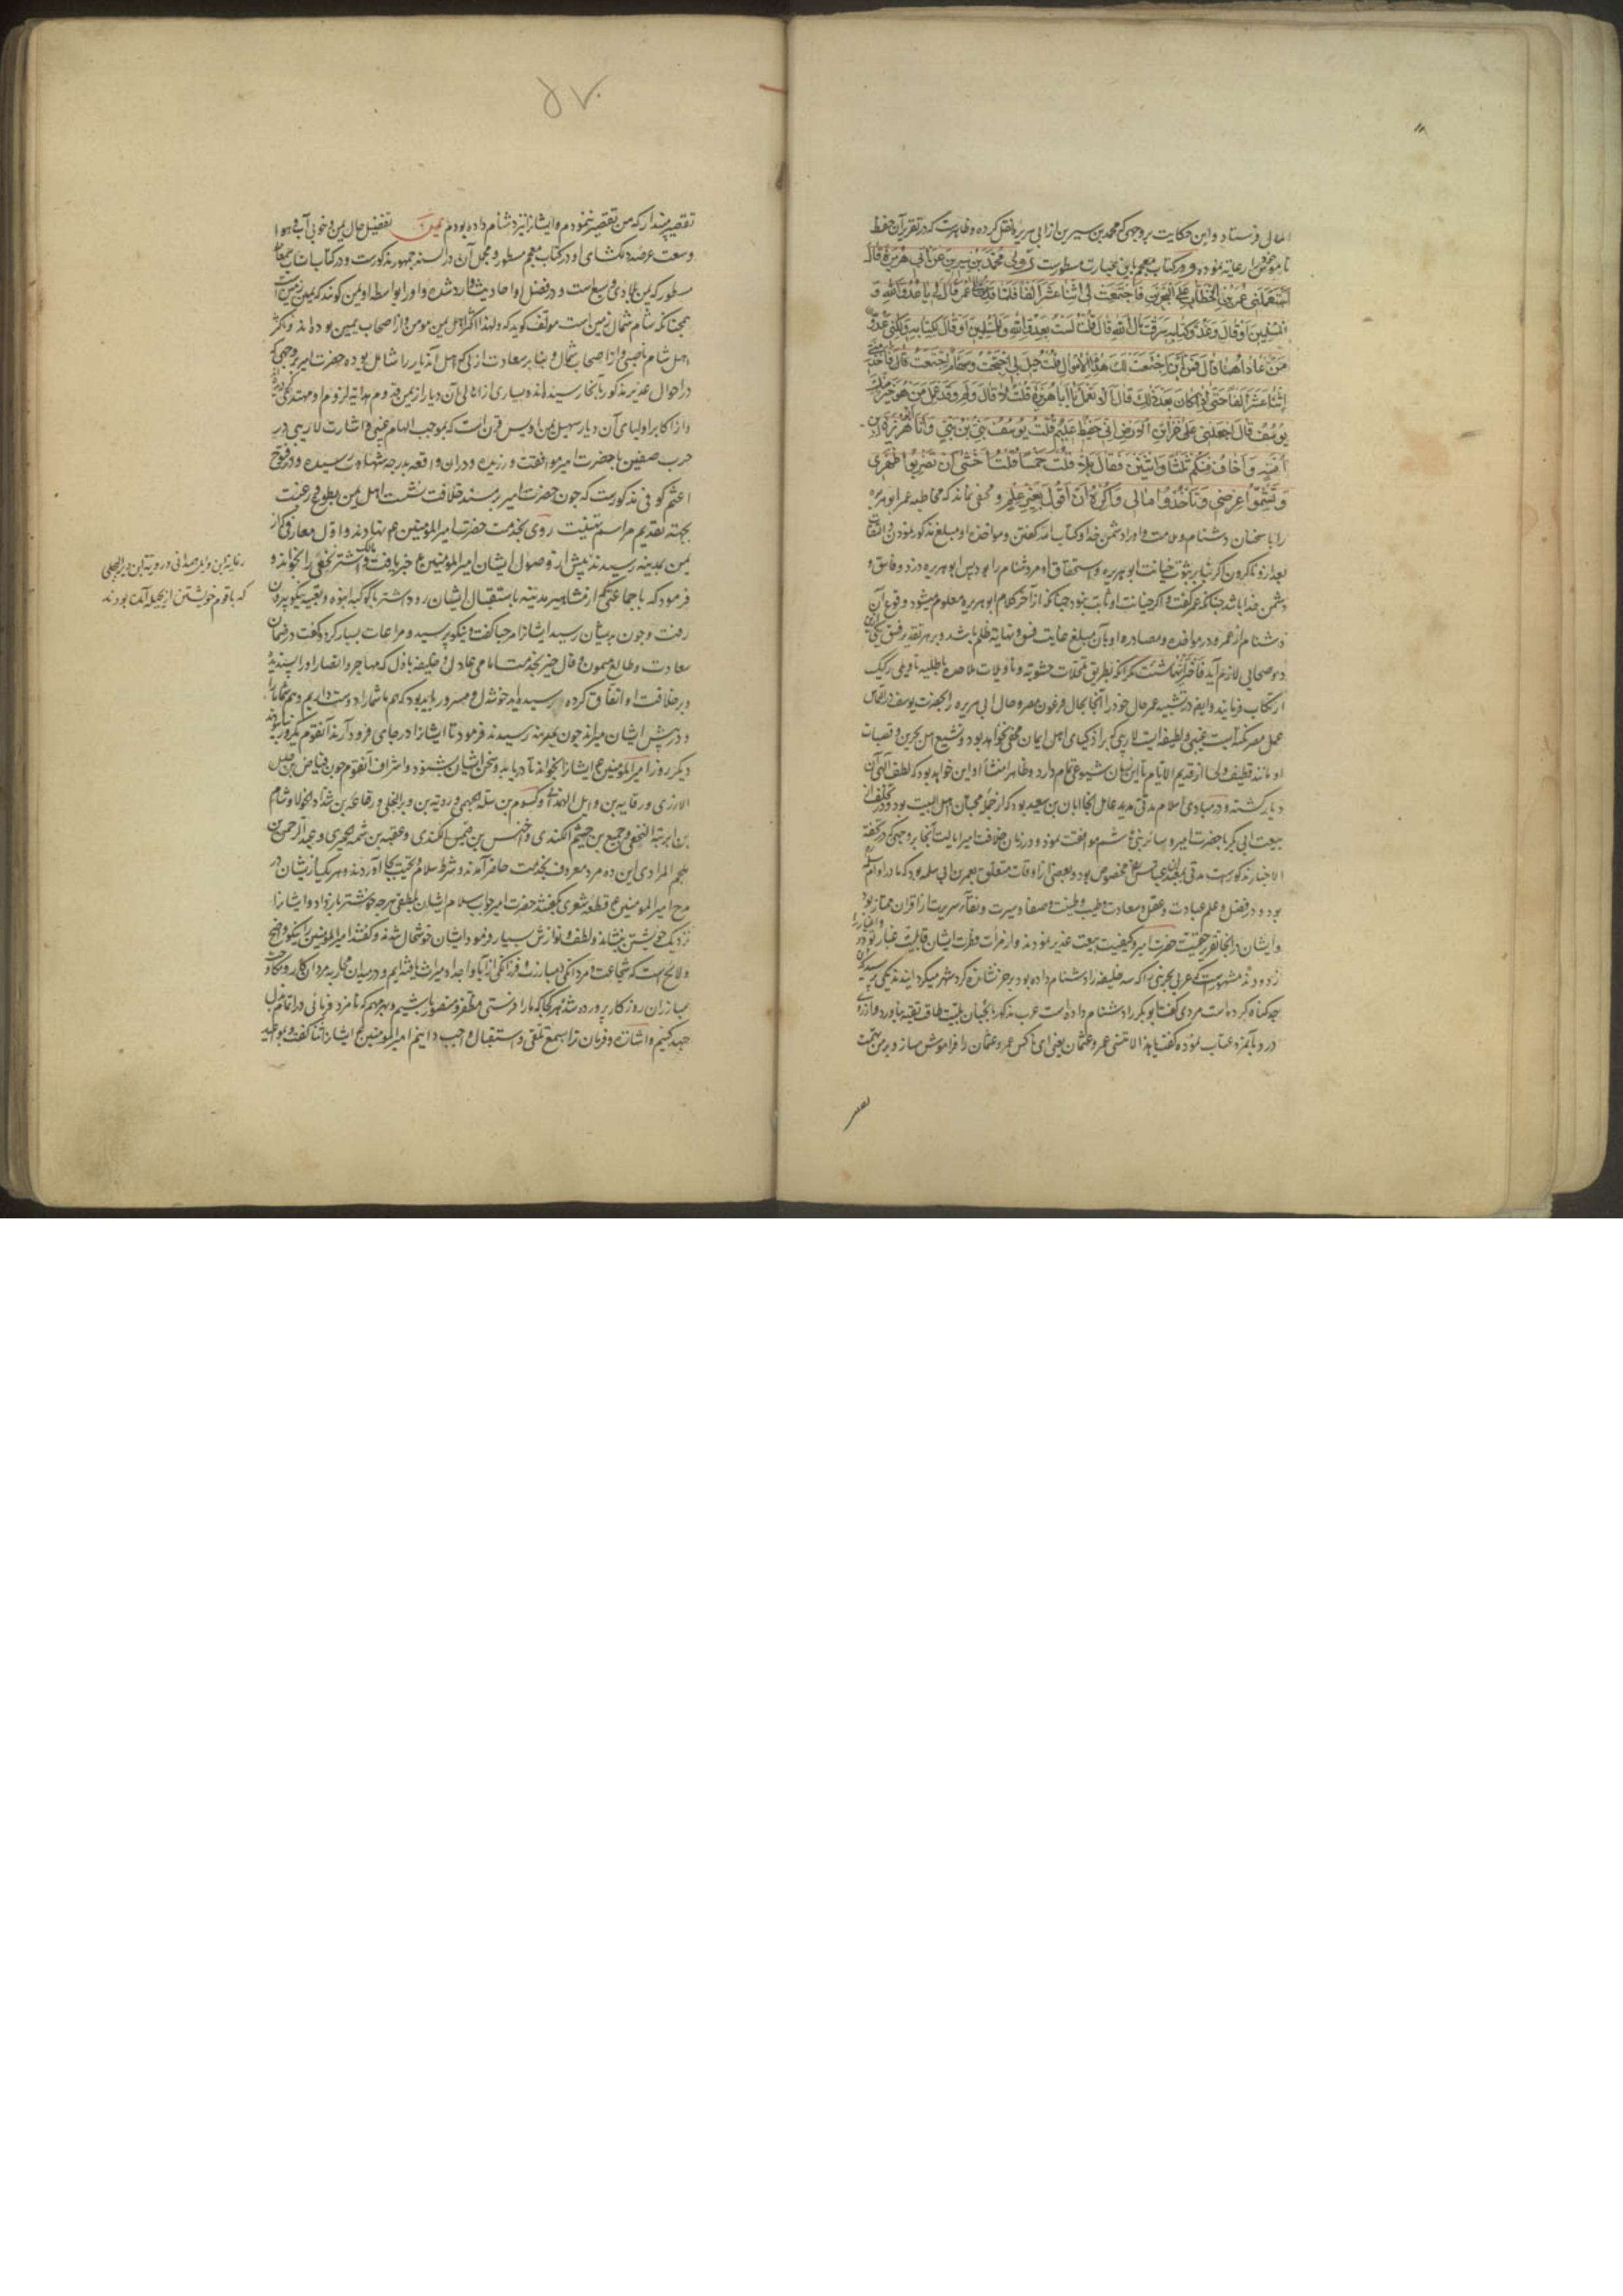 المالی فرستاد و این حکایت بروجهی که محمد بن سیرین از ابی هریره نقل کرده و ظاهرست که در تقریر آن حفظ
ناموس عمر را رعایه نموده و در کتاب معجم باین عبارت مسطورست روی محمد بن سیرین عن ابی هریرة قال
استعملنی عمر بن الخطاب علی البحرین فاجتمعت لی اثنا عشر الفا فلما قدمت علی عمر قال لی یا عدو الله و
المسلمین او قال و عدو کتابه سرقت مال الله قال قلت لست بعدو الله و للمسلمین او قال لکتابه ولکنی عدو
من عاداهما قال فمن این اجتمعت لک هذه الاموال قلت خیل لی تناتجت و سهام اجتمعت قال فاخذ منی
اثنا عشر الفا حتی اذا کان بعد ذلک قال الا تعمل یا ابا هریرة قلت لا قال ولم وقد عمل من هو خیر منک
یوسف قال اجعلنی علی خزائن الارض انی حفیظ علیم قلت یوسف نبی بن نبی وانا ابو هریرة بن
امیه و اخاف منکم ثلثا و اثنتین فقال هلا قلت خمسا قلت اخشی ان تضربوا ظهری
و تشتموا عرضی و تاخذوا مالی و اکره ان اقول بغیر علم و مخفی نماند که مخاطبه عمر ابوهریره
را با سخنان دشنام و ملامت و او را دشمن خدا و کتاب الله گفتن و مواخذه او مبلغ مذکور نمودن و التفات
بعد از و ناکردن اگر بنابر ثبوت خیانت ابوهریره و استحقاق او مر دشنام را بود پس ابوهریره دزد و فاسق و
دشمن خدا باشد چنانکه عمر گفت و اگر خیانت او ثابت نبود چنانکه از آخر کلام ابوهریره معلوم میشود وقوع آن
دشنام از عمر و در مواخذه و مصادره او بآن مبلغ غایت فسق و نهایة ظلم باشد و بر هر تقدیر فسق یکی ازین
دو صحابی لازم آید فاختر ایهما شئت مگر آنکه بطریق تمحلات حشویه و تاویلات ملاحده باطنیه تاویلی رکیک
ارتکاب فرمایند و ایضا در تشبیه عمر حال خود را آنجا بحال فرعون مصر و حال ابی هریره را بحضرت یوسف در التماس
عمل مصر نکته ایست غیبی و لطیفه ایست لاریبی که بر اذکیای اهل ایمان مخفی نخواهد بود و تشیع اهل بحرین و قصبات
او مانند قطیف و لحسا از قدیم الایام تا این زمان شیوعی تمام دارد و ظاهرا منشأ او این خواهد بود که لطف الهی آن
دیار گشته و در مبادی اسلام مدتی مدید عامل آنجا ابان بن سعید بود که از جمله محبان اهل البیت بود و در تخلف از
بیعت ابی بکر با حضرت امیر و سائر بنی هاشم موافقت نمود و در زمان خلافت امیر ایالت آنجا بروجهی که در تحفة
الاخبار مذکورست مدتی بعبدالله عباس مخصوص بود و بعضی از اوقات متعلق بعمر بن ابی سلمه بود که مادر او ام سلمه
بود و در فضل و علم و عبادت و عقل و سعادت و طیب و طینت و صفاء سیرت و نقاء سریرت از اقران ممتاز بود
و ایشان در آنجا تقریر حقیت حضرت امیر و کیفیت بیعت غدیر نمودند و از مرآت فطرت ایشان قابلیت غبار
زدودند مشهورست که عربی بحرینی را که سه خلیفه را دشنام داده بود بر خر نشانده گرد شهر میگردانیدند یکی پرسید که
چه گناه کرده است مردی گفت ابوبکر را دشنام داده است عرب مذکور با بحیان بلیت طاقت تقیه نیاورد و از روی
درد با آمزد عتاب نموده گفت یا هذا لا تنسی عمر و عثمان یعنی ای ناکس عمر و عثمان را فراموش مساز و بر من تهمت
تقصیر

۵۷
تقصیر مپندار که من تقصیر ننمودم و ایشانرا نیز دشنام داده بودم یمن تفضیل حال یمن و خوبی آب و هوا
و سعت عرصه دلگشای او در کتاب معجم مسطور و مجمل آن در السنه جمهور مذکورست و در کتاب انساب سمعانی
مسطور که یمن بلادی وسیع است و در فضل او احادیث وارد شده و او را بواسطه او یمن گویند که یمین زمین است
همچنانکه شام شمال زمین است مولف گوید که و لهذا اکثر اهل یمن مومن و از اصحاب یمین بوده اند و اکثر
اهل شام ناصبی و از اصحاب شمال و بنابر سعادت ازلی که اهل آندیار را شامل بوده حضرت امیر بروجهی که
در احوال غدیر مذکور بآنجا رسیده اند و بسیاری از اهالی آن دیار از یمن قدوم هدایه لزوم او مهتدی گردیده
و از اکابر اولیای آن دیار سهیل یمن اویس قرن است که بموجب الهام غیبی و اشارت لاریبی در
حرب صفین با حضرت امیر موافقت ورزیده و در ان واقعه بدرجه شهادت رسیده و در فتوح
اعثم کوفی مذکورست که چون حضرت امیر بر مسند خلافت نشست اهل یمن بطوع و رغبت
بجهة تقدیم مراسم تهنیت روی بخدمت حضرت امیر المومنین ع م نهادند و اول معارفی که از
یمن بمدینه رسیدند پیش از وصول ایشان امیر المومنین ع خبر یافت و مالک اشتر نخعی را بخواند و
فرمود که با جماعتی از مشاهیر مدینه باستقبال ایشان رود اشتر با کوکبه انبوه و تعبیه نیکو بیرون
رفت و چون بدیشان رسید ایشانرا مرحبا گفت و نیکو پرسید و مراعات بسیار کرد و گفت در ضمان
سعادت و طالع میمون و فال خیر بخدمت امامی عادل و خلیفه باذل که مهاجر و انصار او را پسندیده
و بر خلافت او اتفاق کرده رسیده اید خوشدل و مسرور باید بود که هم ما شما را دوست داریم و هم شما ما را
و در پیش ایشان میراند چون بمدینه رسیدند فرمود تا ایشانرا در جای فرود آرند آنقوم یکروز بیاسودند
دیگر روز امیر المومنین ع ایشانرا بخواند تا دریابد و سخن ایشان بشنود و اشراف آنقوم چون فیاض بن خلیل
الازدی و رفایه بن وایل الهمدانی و کیسوم بن سلمه الجهنی و رویه بن وبر البجلی و رفاعه بن شداد الخولانی و هشام
بن ابرهة النخعی و جمیع بن خیثم الکندی و اخنس بن قیس الکندی و عقبه بن نعمه الحمیری و عبد الرحمن بن
ملجم المرادی این ده مرد معروف بخدمت حاضر آمدند و شرط سلام و تحیت بجا آوردند و هر یک از ایشان در
مدح امیر المومنین ع قطعه شعری بگفتند حضرت امیر جواب سلام ایشان بلطفی هر چه تمامتر باز داد و ایشانرا
نزدیک خویشتن بنشاند و لطف و نوازش بسیار فرمود ایشان خوشحال شدند و گفتند امیر المومنین را نیکو واضح
و لائح است که شجاعت و مردانگی و مبارزت و فرزانگی از آبا و اجداد میراث یافته ایم و در میدان محاربه مردان کار و
مبارزان روزگار پرورده شده هر کجا که ما را فرستی مظفر و منصور باشیم و بهر مهم که نامزد فرمائی در اتمام آن
جهد کنیم و اشارت و فرمان ترا بسمع تلقی و استقبال واجب دانیم امیر المومنین ع ایشانرا ثنا گفت و بمواعید
رفایه بن وایل همدانی و رویه ابن وبر البجلی
که با قوم خویشتن از بجیله آمده بودند